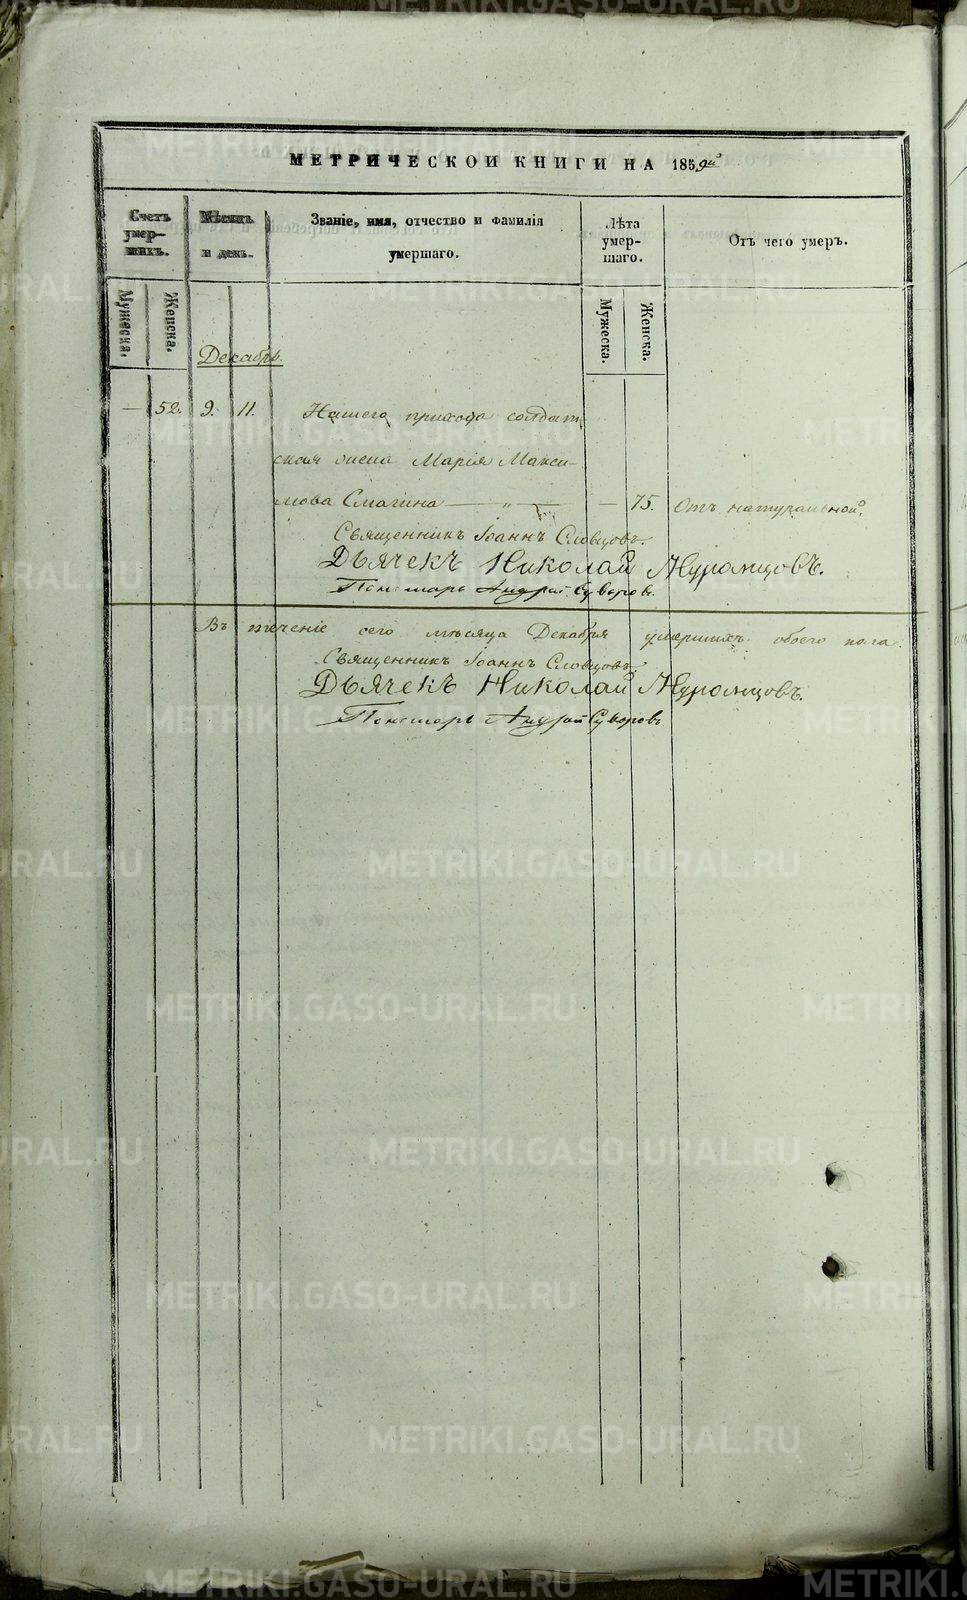 МЕТРИЧЕСКОЙ КНИГИ НА 1859й
Счетъ умер-шихъ.
Мѣсяцъ и день.
Званіе, имя, отчество и фамилія умершаго.
Лѣта умер-шаго.
Отъ чего умеръ.
Мужеска.
Женска.
Мужеска.
Женска.
Декабрь.
— 52. 9. 11. Нашего прихода солдат-
ская жена Марія Макси-
мова Смагина — „ — — 75. Отъ натуральной.
Священникъ Іоаннъ Словцовъ.
Дьячекъ Николай Муромцовъ.
Пономарь Андрей Суворовъ.
Въ теченіе сего мѣсяца Декабря умершихъ обоего пола.
Священникъ Іоаннъ Словцовъ.
Дьячекъ Николай Муромцовъ.
Пономарь Андрей Суворовъ
METRIKI.GASO-URAL.RU